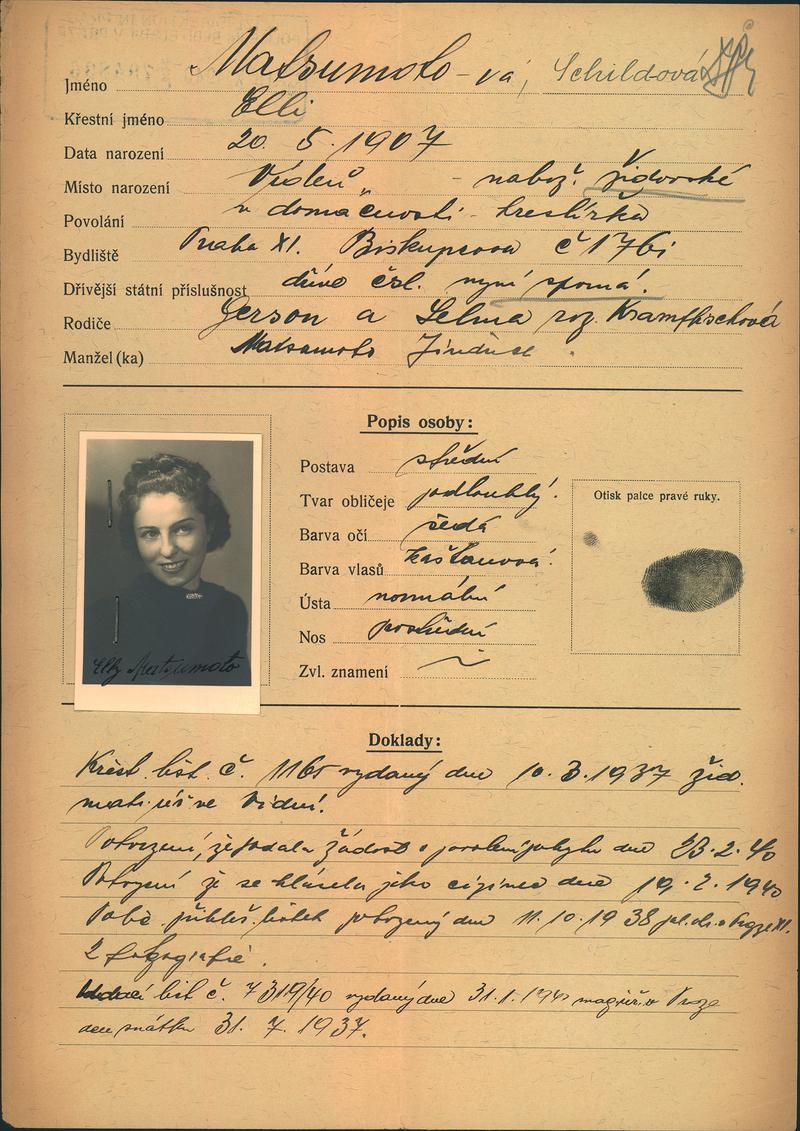 Jméno Matsumoto-vá, Schildová
Křestní jméno Elli
Data narození 20. 5. 1907
Místo narození Vídeň - nábož. židovské
Povolání v domácnosti - kreslířka
Bydliště Praha XI. Biskupcova č 176
Dřívější státní příslušnost dříve čsl. nyní sporná.
Rodiče Gerson a Selma roz.
Manžel (ka) Matsumoto Jindřich
Popis osoby:
Postava střední
Tvar obličeje podlouhlý.
Barva očí šedá
Barva vlasů kaštanová.
Ústa normální
Nos prostřední
Zvl. znamení
Otisk palce pravé ruky.
Elly Matsumoto
Doklady:
Křest. list č. 1165 vydaný dne 10.3.1937 žid.
matr. úř. ve Vídni.
Potvrzení, že podala žádost o povolení pobytu dne 23.2.40
Potvrzení že se hlásila jako cizinec dne 19.2.1940
přihláš. lístek potvrzený dne 11.10.1938 pol. Praze XI.
2 fotografie.
list č. 7319/40 vydaný dne 31.1.1940 v Praze
den sňatku 31. 7. 1937.